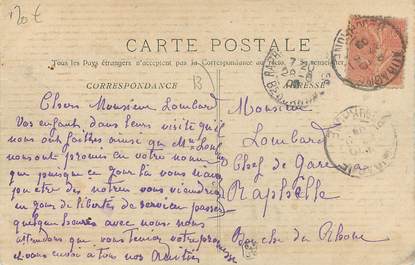 120 €
CARTE POSTALE
Tous les Pays étrangers n'acceptent pas la Correspondance au Recto. Se renseigner
CORRESPONDANCE
ADRESSE
B
Chers Monsieur Lombard
Vos enfants dans leurs visite qu'il
nous ont faittes ainsi que Mme Lomb
nous ont promis en votre nom
que jusque ce jour là vous
pour être des notres vous viendriez
un jour de libertés de service passer
quelques heures avec nous. nous
attendons que vous Teniez votre promesse
et vous envoi à tous nos Amitiés
Monsieur
Lombard
Chef de Gare
Raphelle
Bouche du Rhone